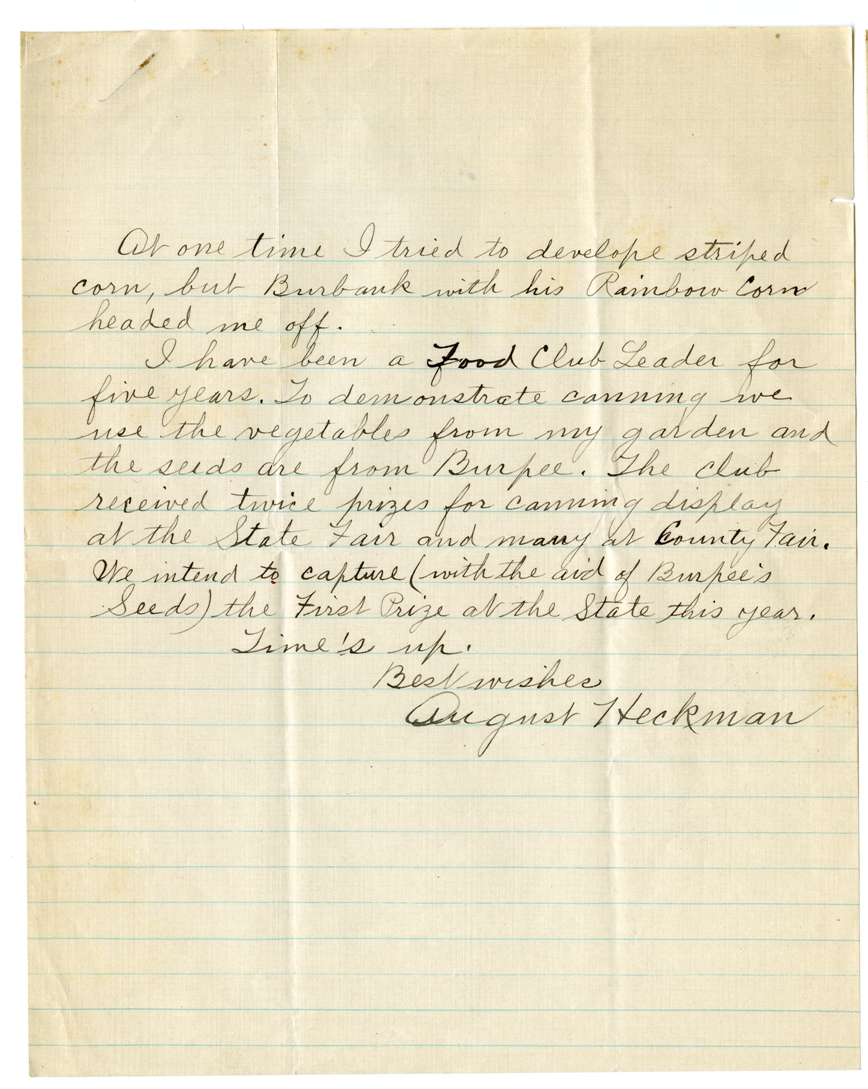 At one time I tried to develope striped
corn, but Burbank with his Rainbow Corn
headed me off.
I have been a Food Club Leader for
five years. To demonstrate canning we
use the vegetables from my garden and
the seeds are from Burpee. The club
received twice prizes for canning display
at the State Fair and many at County Fair.
We intend to capture (with the aid of Burpee's
Seeds) the First Prize at the State this year.
Time's up.
Best wishes
August Heckman